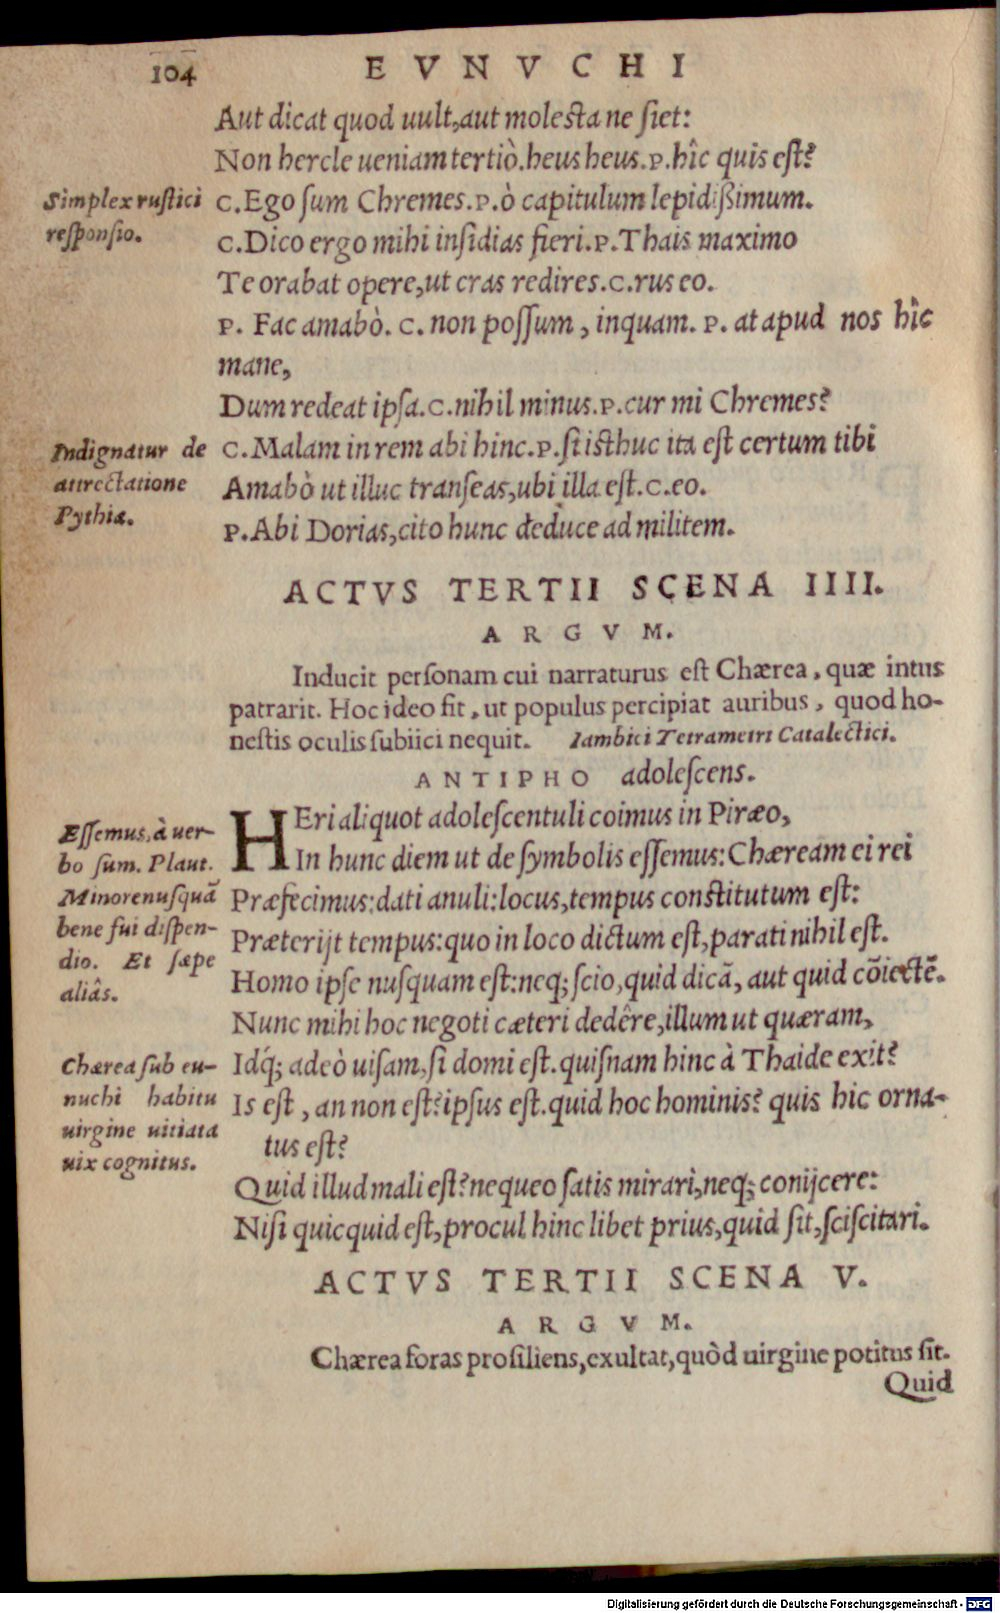 104
EVNVCHI
Aut dicat quod uult, aut molesta ne siet:
Non hercle ueniam tertiò. heus heus. P. hîc quis est?
Simplex rustici
responsio.
C. Ego sum Chremes. P. ò capitulum lepidißimum.
C. Dico ergo mihi insidias fieri. P. Thais maximo
Te orabat opere, ut cras redires. C. rus eo.
P. Fac amabò. C. non possum, inquam. P. at apud nos hîc
mane,
Dum redeat ipsa. C. nihil minus. P. cur mi Chremes?
Indignatur de
attrectatione
Pythiæ.
C. Malam in rem abi hinc. P. si isthuc ita est certum tibi
Amabò ut illuc transeas, ubi illa est. C. eo.
P. Abi Dorias, cito hunc deduce ad militem.
ACTVS TERTII SCENA IIII.
ARGVM.
Inducit personam cui narraturus est Chærea, quæ intus
patrarit. Hoc ideo fit, ut populus percipiat auribus, quod ho-
nestis oculis subiici nequit. Iambici Tetrametri Catalectici.
ANTIPHO adolescens.
HEri aliquot adolescentuli coimus in Piræo,
In hunc diem ut de symbolis essemus: Chæream ei rei
Præfecimus: dati anuli: locus, tempus constitutum est:
Præterijt tempus: quo in loco dictum est, parati nihil est.
Homo ipse nusquam est: neq; scio, quid dicā, aut quid cōiectē.
Nunc mihi hoc negoti cæteri dedêre, illum ut quæram,
Essemus, à uer-
bo sum. Plaut.
Minore nusquā
bene fui dispen-
dio. Et sæpe
aliâs.
Idq́; adeò uisam, si domi est. quisnam hinc à Thaide exit?
Is est, an non est? ipsus est. quid hoc hominis? quis hic orna-
tus est?
Chærea sub eu-
nuchi habitu
uirgine uitiata
uix cognitus.
Quid illud mali est? nequeo satis mirari, neq; conijcere:
Nisi quicquid est, procul hinc libet prius, quid sit, sciscitari.
ACTVS TERTII SCENA V.
ARGVM.
Chærea foras prosiliens, exultat, quòd uirgine potitus sit.
Quid
Digitalisierung gefördert durch die Deutsche Forschungsgemeinschaft - DFG